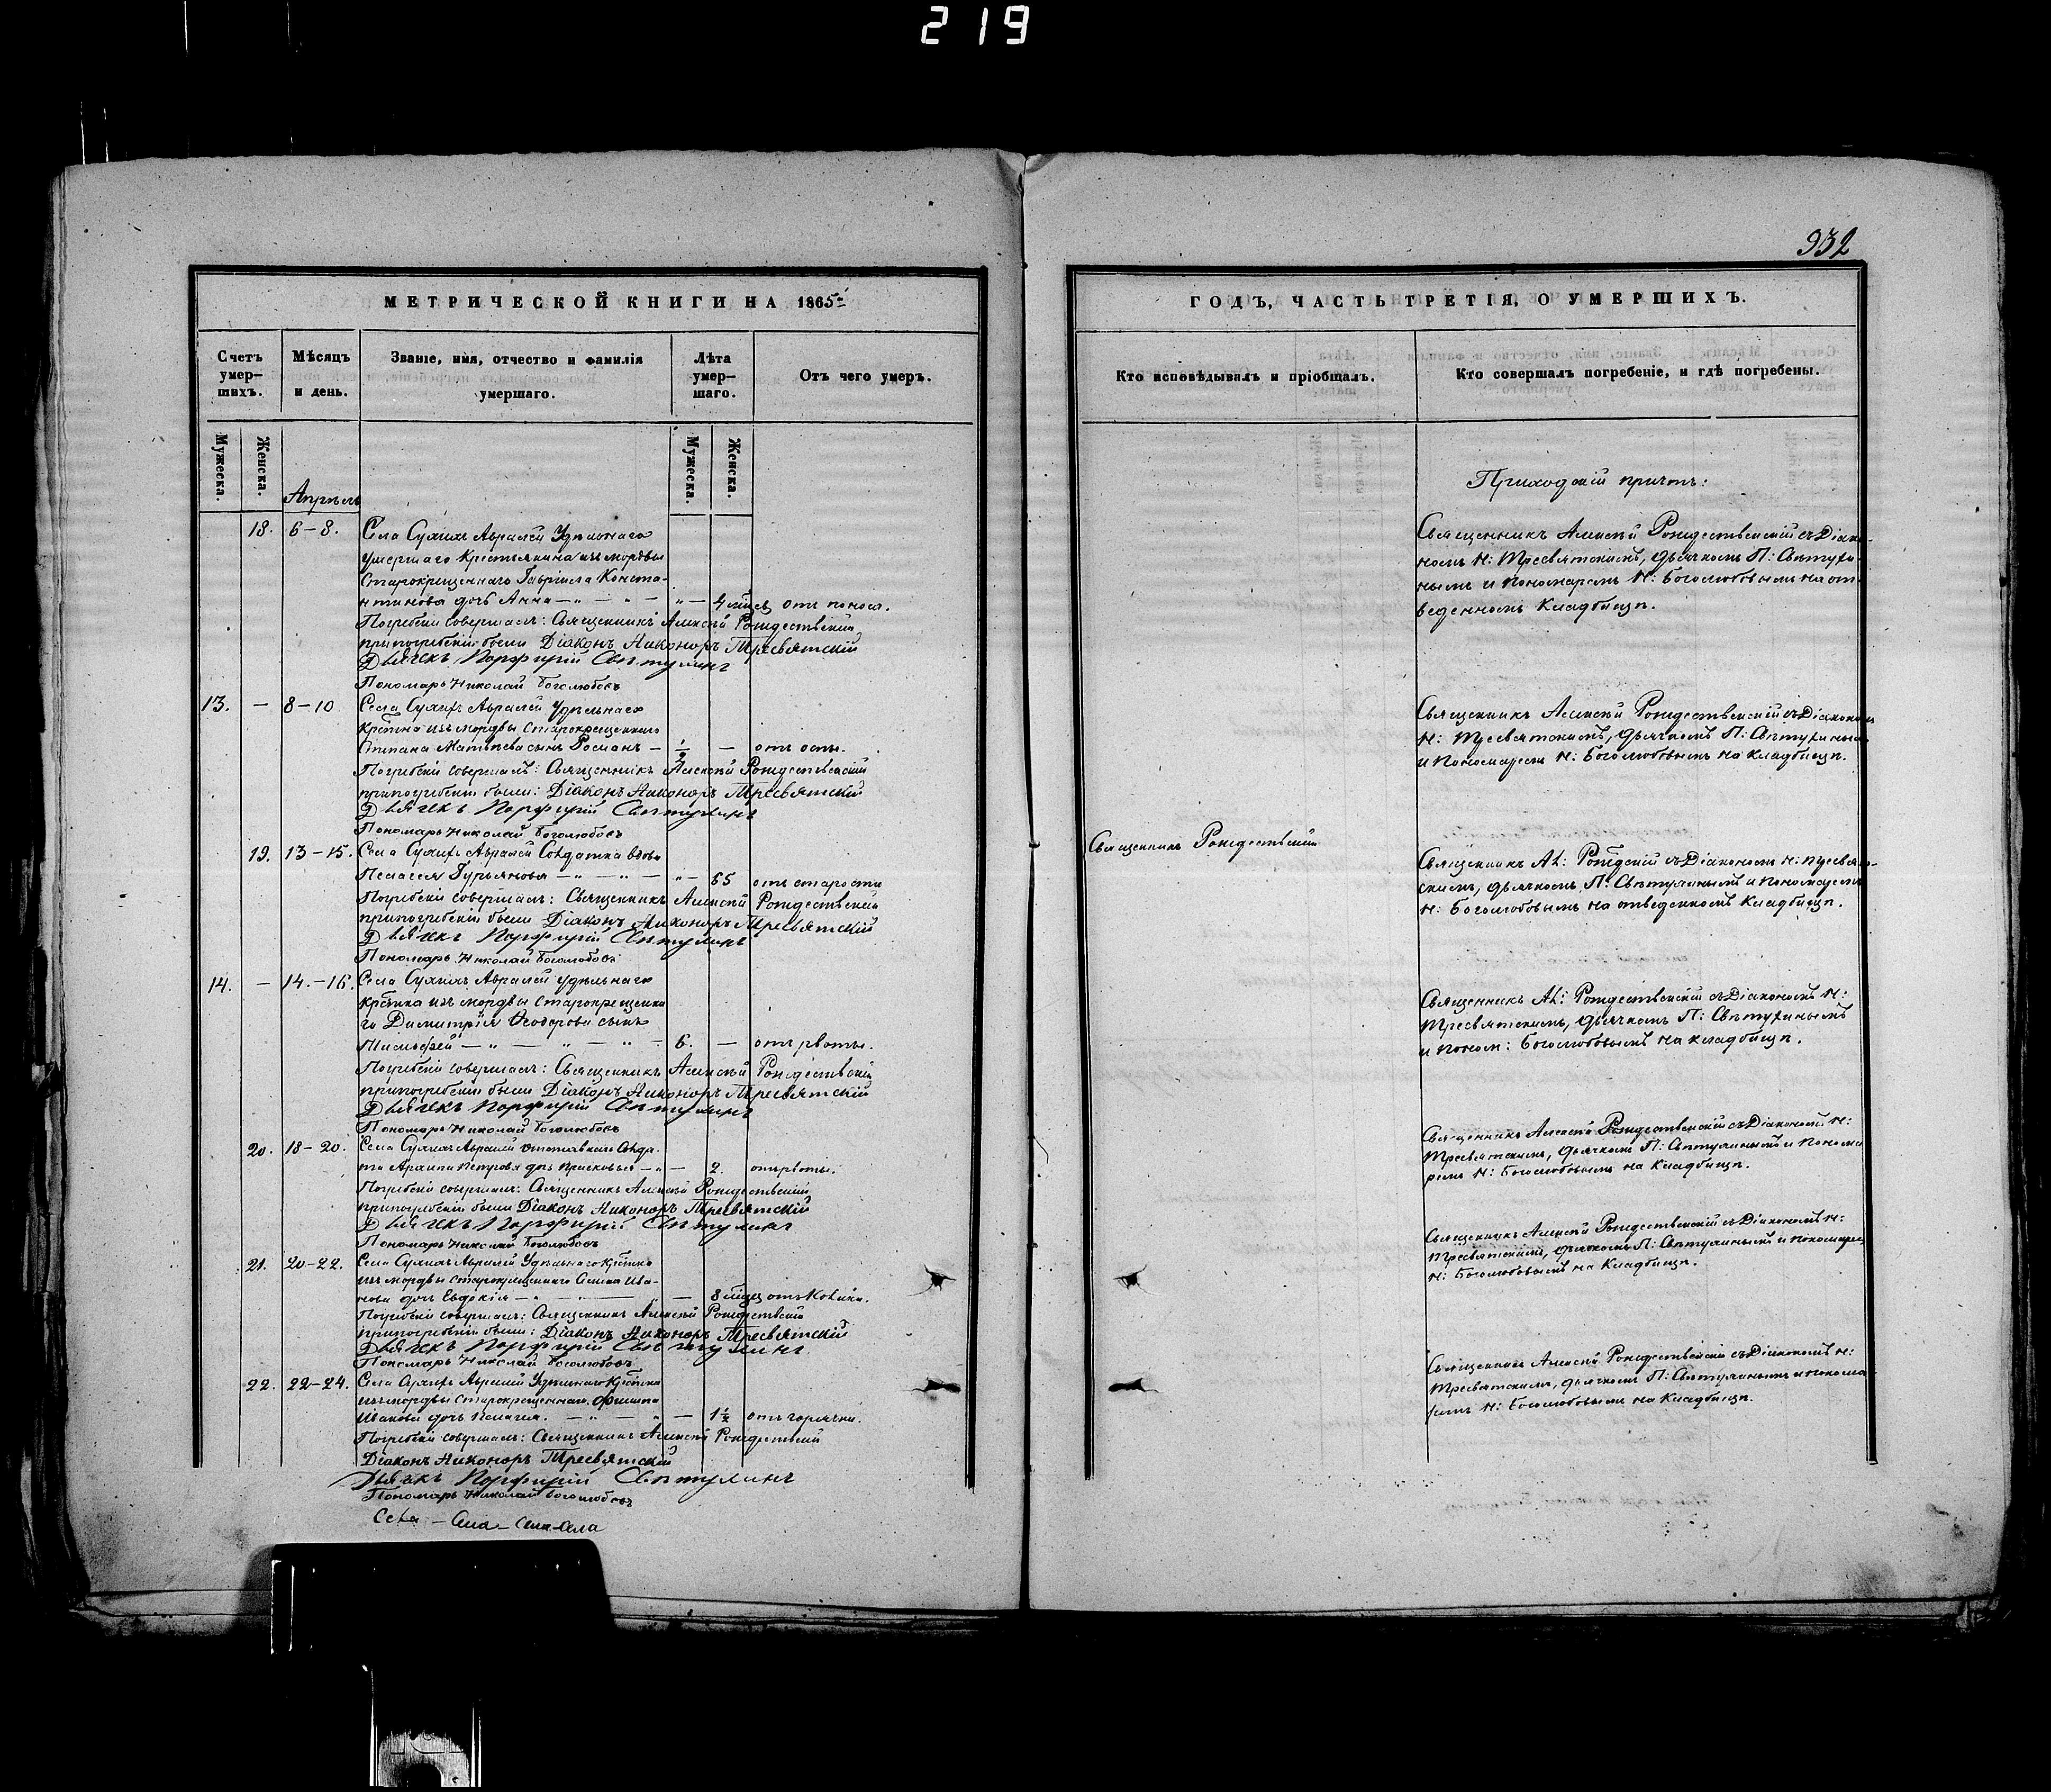 219
932
МЕТРИЧЕСКОЙ КНИГИ НА 1865й
Счетъ умер-шихъ.
Мѣсяцъ и день.
Званіе, имя, отчество и фамилія умершаго.
Лѣта умер-шаго.
Отъ чего умеръ.
Мужеска.
Женска.
Мужеска.
Женска.
Апрѣль
18. 6–8. Села Сухихъ Авралей Удѣльнаго
умершаго Крестьянина изъ мордвы
Старокрещеннаго Гавріила Конста-
нтинова дочь Анна – „ – „ – „ – 4 мѣсяц. отъ поноса.
Погребеніе совершалъ: Священникъ Алексѣй Рождественскій
при погребеніи были Діаконъ Никоноръ Тресвятскій
Дьячекъ Порфирій Свѣтухинъ
Пономарь Николай Боголюбовъ
13. – 8–10 Села Сухихъ Авралей Удѣльнаго
крестьянина изъ мордвы Старокрещеннаго
Степана Матвѣева сынъ Романъ – ½ – отъ оспы.
Погребеніе совершалъ: Священникъ Алексѣй Рождественскій
при погребеніи были: Діаконъ Никоноръ Тресвятскій
Дьячекъ Порфирій Свѣтухинъ
Пономарь Николай Боголюбовъ
19. 13–15. Села Сухихъ Авралей Солдатка вдова
Пелагея Гурьянова – „ – „ – „ – 65 отъ старости
Погребеніе совершалъ: Священникъ Алексѣй Рождественскій
при погребеніи были Діаконъ Никоноръ Тресвятскій
Дьячекъ Порфирій Свѣтухинъ
Пономарь Николай Боголюбовъ
14. – 14.–16. Села Сухихъ Авралей Удѣльнаго
крестьянина изъ мордвы Старокрещенна
го Димитрія Ѳеодорова сынъ
Тимофей – „ – „ – „ – 6. – отъ рвоты.
Погребеніе совершалъ: Священникъ Алексѣй Рождественскій
при погребеніи были Діаконъ Никоноръ Тресвятскій
Дьячекъ Порфирій Свѣтухинъ
Пономарь Николай Боголюбовъ
20. 18–20. Села Сухихъ Авралей Отставнаго Солда-
та Архипа Петрова дочь Прасковья – „ – 2. отъ рвоты.
Погребеніе совершалъ: Священникъ Алексѣй Рождественскій
при погребеніи были Діаконъ Никоноръ Тресвятскій
Дьячекъ Порфирій Свѣтухинъ
Пономарь Николай Боголюбовъ
21. 20–22. Села Сухихъ Авралей Удѣльнаго крестьянина
изъ мордвы старокрещеннаго Ива-
нова дочь Евдокія – „ – – 8 мѣсяц.
Погребеніе совершалъ: Священникъ Алексѣй Рождественскій
при погребеніи были: Діаконъ Никоноръ Тресвятскій
Дьячекъ Порфирій Свѣтухинъ
Пономарь Николай Боголюбовъ
22. 22–24. Села Сухихъ Авралей Удѣльнаго крестьянина
изъ мордвы Старокрещеннаго Филиппа
Иванова дочь Пелагея. – „ – „ – 1½ отъ горячки.
Погребеніе совершалъ: Священникъ Алексѣй Рождественскій
Діаконъ Никоноръ Тресвятскій
Дьячекъ Порфирій Свѣтухинъ
Пономарь Николай Боголюбовъ
Села – Села – Села – Села
ГОДЪ, ЧАСТЬ ТРЕТІЯ, О УМЕРШИХЪ.
Кто исповѣдывалъ и пріобщалъ.
Кто совершалъ погребеніе, и гдѣ погребены.
Приходскій причтъ:
Священникъ Алексѣй Рождественскій съ Діако-
номъ Н: Тресвятскимъ, дьячкомъ П: Свѣтухи-
нымъ и Пономаремъ Н: Боголюбовымъ на от-
веденномъ Кладбищѣ.
Священникъ Алексѣй Рождественскій съ Діакономъ
Н: Тресвятскимъ, дьячкомъ П: Свѣтухинымъ
и Пономаремъ Н: Боголюбовымъ на Кладбищѣ.
Священникъ Рождественскій
Священникъ Ал: съ Діакономъ Н: Тресвят-
скимъ, дьячкомъ П: Свѣтухинымъ и Пономаремъ
Н: Боголюбовымъ на отведенномъ Кладбищѣ.
Священникъ Ал: Рождественскій съ Діакономъ Н:
Тресвятскимъ, дьячкомъ П: Свѣтухинымъ
и Поном: Боголюбовымъ на кладбищѣ.
Священникъ Алексѣй Рождественскій съ Діакономъ Н:
Тресвятскимъ, дьячкомъ П: Свѣтухинымъ и Понома
ремъ Н: Боголюбовымъ на Кладбищѣ.
Священникъ Алексѣй Рождественскій съ Діакономъ Н:
Тресвятскимъ, дьячкомъ П: Свѣтухинымъ и пономаремъ
Н: Боголюбовымъ на Кладбищѣ.
Священникъ Алексѣй Рождественскій съ Діакономъ Н:
Тресвятскимъ, дьячкомъ П: Свѣтухинымъ и понома-
ремъ Н: Боголюбовымъ на Кладбищѣ.